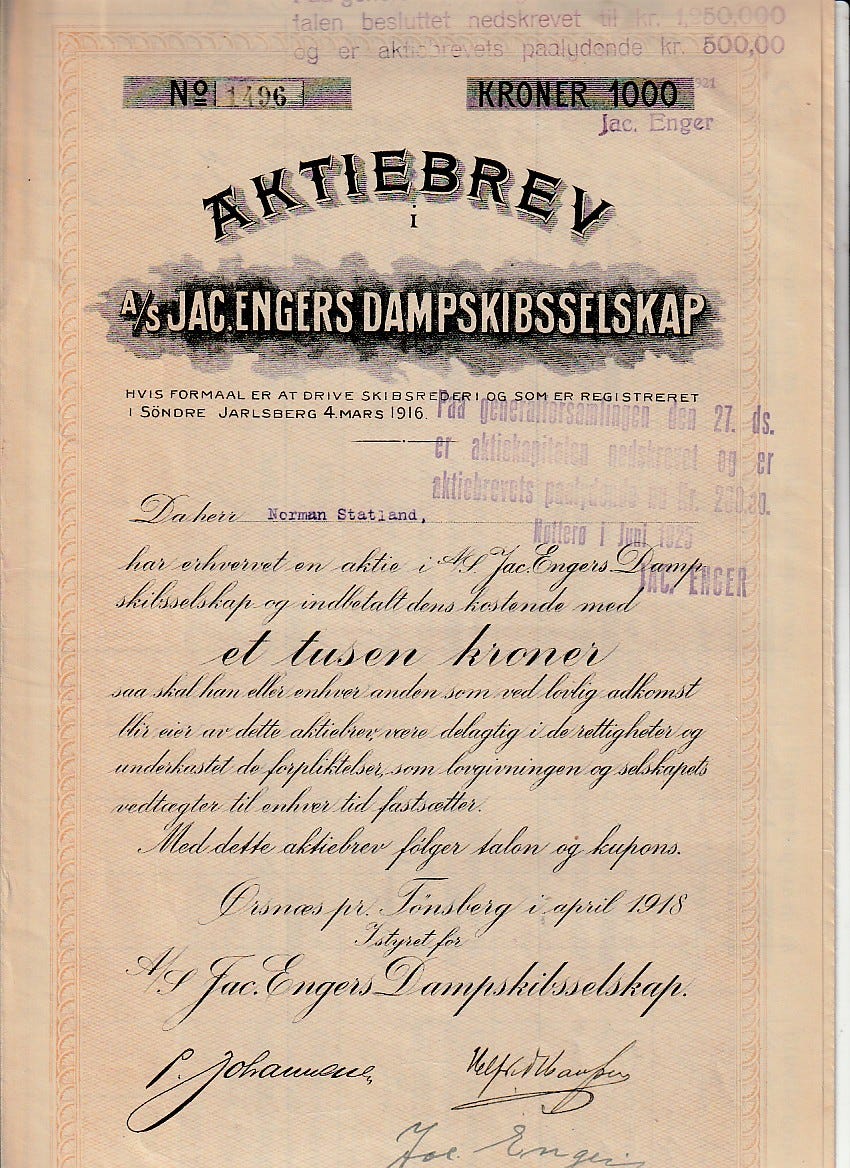 talen besluttet nedskrevet til kr. 1,250,000
og er aktiebrevets paalydende kr. 500,00
No 1496
KRONER 1000
1921
Jac. Enger
AKTIEBREV
I
A/S JAC. ENGERS DAMPSKIBSSELSKAP
HVIS FORMAAL ER AT DRIVE SKIBSREDERI OG SOM ER REGISTRERET
I SÖNDRE JARLSBERG 4. MARS 1916.
Paa generalforsamlingen den 27. ds.
er aktiekapitalen nedskrevet og er
aktiebrevets paalydende nu Kr.
Da herr Norman Statland,
Nötterö i Juni 1925
har erhvervet en aktie i A/S Jac. Engers Damp
JAC. ENGER
skibsselskap og indbetalt dens kostende med
et tusen kroner
saa skal han eller enhver anden som ved lovlig adkomst
blir eier av dette aktiebrev, være delagtig i de rettigheter og
underkastet de forpliktelser, som lovgivningen og selskapets
vedtægter til enhver tid fastsætter.
Med dette aktiebrev følger talon og kupons.
Ørsnæs pr. Tönsberg i april 1918
I styret for
A/S Jac. Engers Dampskibsselskap.
Jac. Enger